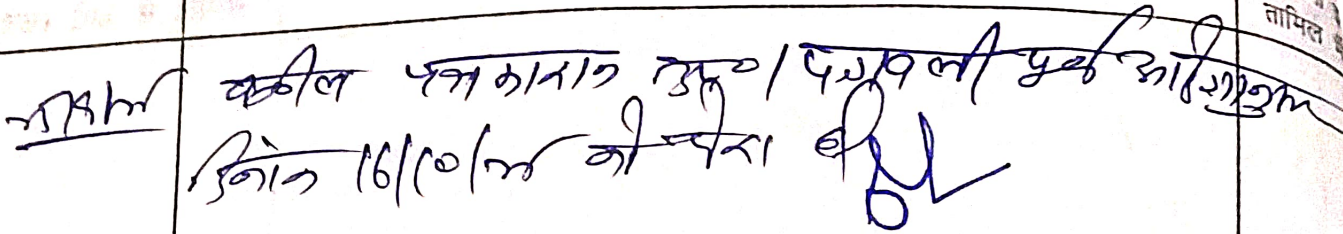 तामिल
वकील पक्षकारान उप०। पत्रावली पूर्व आदेशानुसार
दिनांक 16/10/ को पेश हो